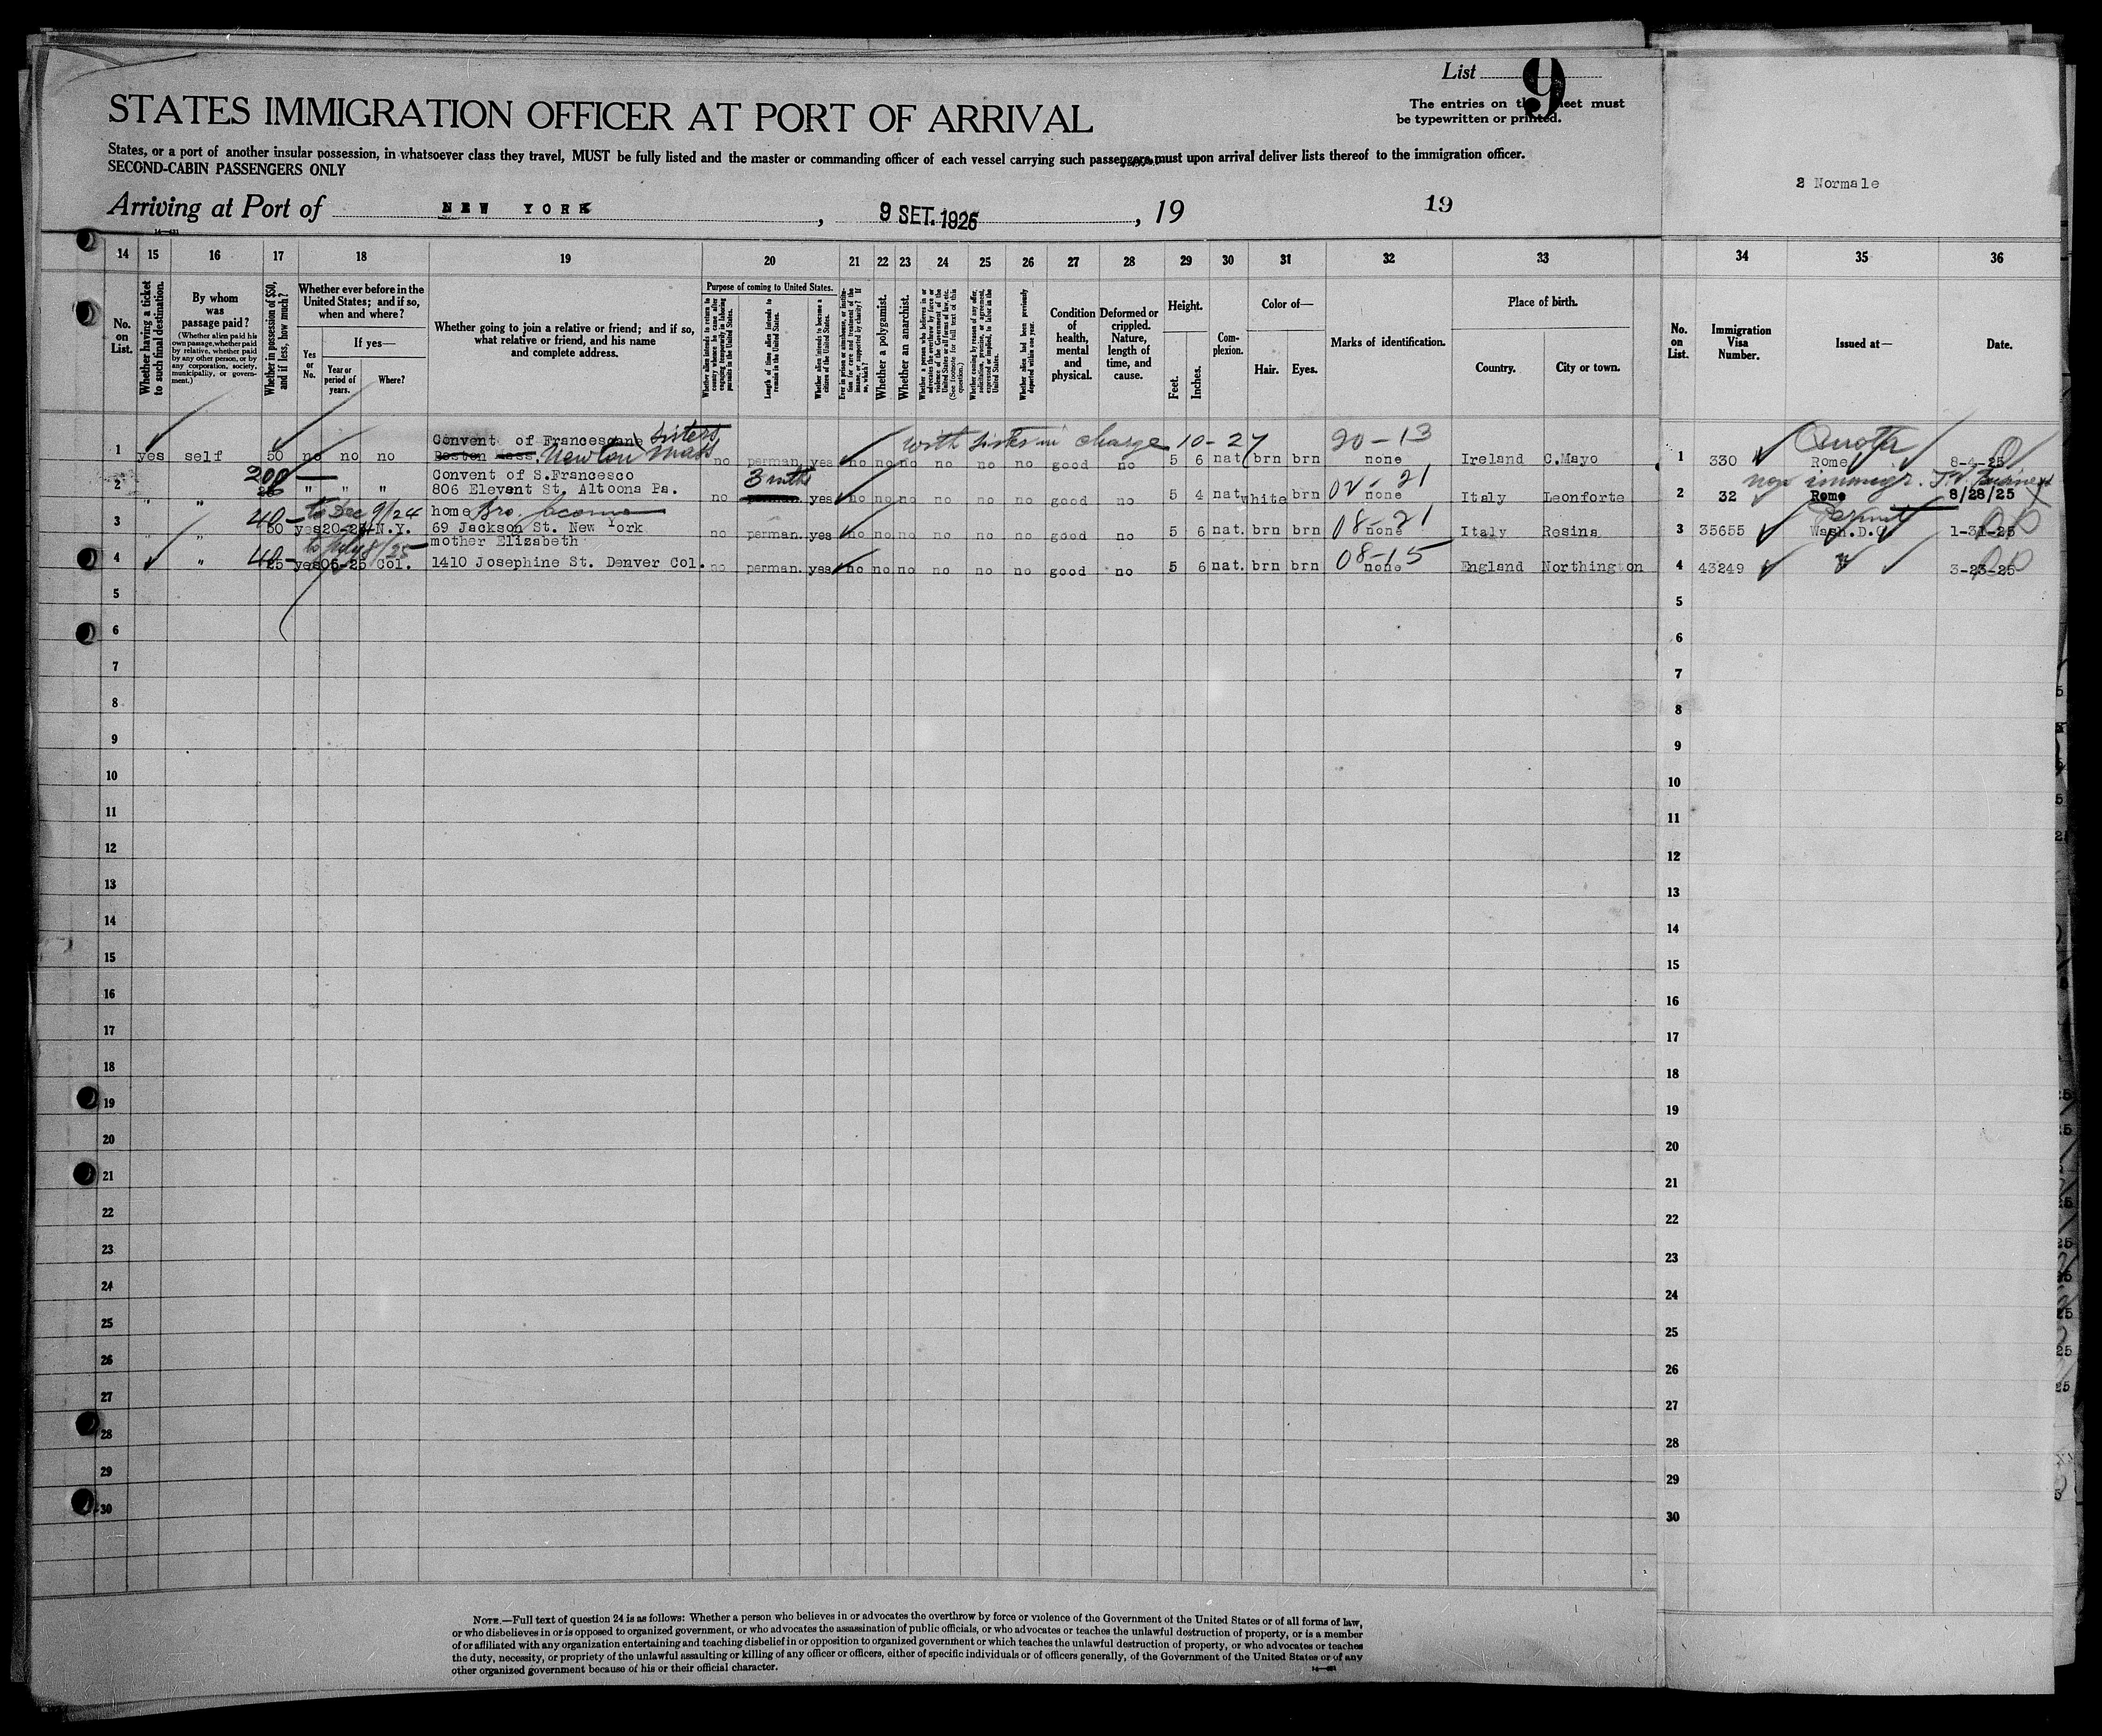 List 9
STATES IMMIGRATION OFFICER AT PORT OF ARRIVAL
The entries on sheet must
be typewritten or printed.
States, or a port of another insular possession, in whatsoever class they travel, MUST be fully listed and the master or commanding officer of each vessel carrying such passengers must upon arrival deliver lists thereof to the immigration officer.
SECOND-CABIN PASSENGERS ONLY
2 Normale
Arriving at Port of NEW YORK, 9 SET. 1925, 19 19
14 15 16 17 18 19 20 21 22 23 24 25 26 27 28 29 30 31 32 33 34 35 36
No. on List.
Whether having a ticket to such final destination.
By whom was passage paid?
(Whether alien paid his own passage, whether paid by relative, whether paid by any other person, or by any corporation, society, municipality, or government.)
Whether in possession of $50, and if less, how much?
Whether ever before in the United States; and if so, when and where?
Yes or No.
If yes—
Year or period of years.
Where?
Whether going to join a relative or friend; and if so, what relative or friend, and his name and complete address.
Purpose of coming to United States.
Whether alien intends to return to country whence he came after engaging temporarily in laboring pursuits in the United States.
Length of time alien intends to remain in the United States.
Whether alien intends to become a citizen of the United States.
Ever in prison or almshouse, or institution for care and treatment of the insane, or supported by charity? If so, which?
Whether a polygamist.
Whether an anarchist.
Whether a person who believes in or advocates the overthrow by force or violence of the Government of the United States or all forms of law, etc. (See footnote for full text of this question.)
Whether coming by reason of any offer, solicitation, promise, or agreement, expressed or implied, to labor in the United States.
Whether alien had been previously deported within one year.
Condition of health, mental and physical.
Deformed or crippled. Nature, length of time, and cause.
Height.
Feet.
Inches.
Complexion.
Color of—
Hair.
Eyes.
Marks of identification.
Place of birth.
Country.
City or town.
No. on List.
Immigration Visa Number.
Issued at—
Date.
Convent of Francescane Sisters with Sisters in charge 10-27 20-13 Quota
1 yes self 50 no no no Boston Mass. Newton Mass no perman. yes no no no no no no good no 5 6 nat brn brn none Ireland C.Mayo 1 330 Rome 8-4-25
200 Convent of S.Francesco 3 mths 02-21 non immigr.
2 " " " " " 806 Elevent St. Altoona Pa. no perman. yes no no no no no no good no 5 4 nat white brn none Italy Leonforte 2 32 Rome 8/28/25
40 to Dec 9/24 home Bro. 08-21 Permit
3 " " 50 yes 20-24 N.Y. 69 Jackson St. New York no perman. yes no no no no no no good no 5 6 nat. brn brn none Italy Resina 3 35655 Wash.D.C. 1-31-25
40 to July 8/25 mother Elizabeth 08-15
4 " 25 yes 05-25 Col. 1410 Josephine St. Denver Col. no perman. yes no no no no no no good no 5 6 nat. brn brn none England Northington 4 43249 " 3-23-25
5 5
6 6
7 7
8 8
9 9
10 10
11 11
12 12
13 13
14 14
15 15
16 16
17 17
18 18
19 19
20 20
21 21
22 22
23 23
24 24
25 25
26 26
27 27
28 28
29 29
30 30
NOTE.—Full text of question 24 is as follows: Whether a person who believes in or advocates the overthrow by force or violence of the Government of the United States or of all forms of law,
or who disbelieves in or is opposed to organized government, or who advocates the assassination of public officials, or who advocates or teaches the unlawful destruction of property, or is a member
of or affiliated with any organization entertaining and teaching disbelief in or opposition to organized government or which teaches the unlawful destruction of property, or who advocates or teaches
the duty, necessity, or propriety of the unlawful assaulting or killing of any officer or officers, either of specific individuals or of officers generally, of the Government of the United States or of any
other organized government because of his or their official character.